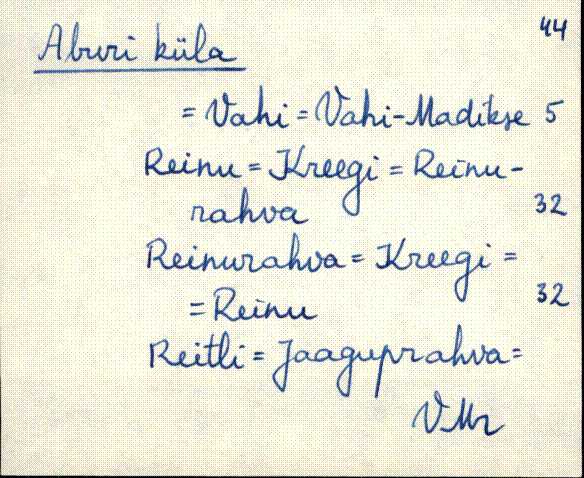 44
Aburi küla
= Vahi = Vahi-Madikse 5
Reinu = Kreegi = Reinu-
rahva 32
Reinurahva = Kreegi =
= Reinu 32
Reitli = Jaaguprahva =